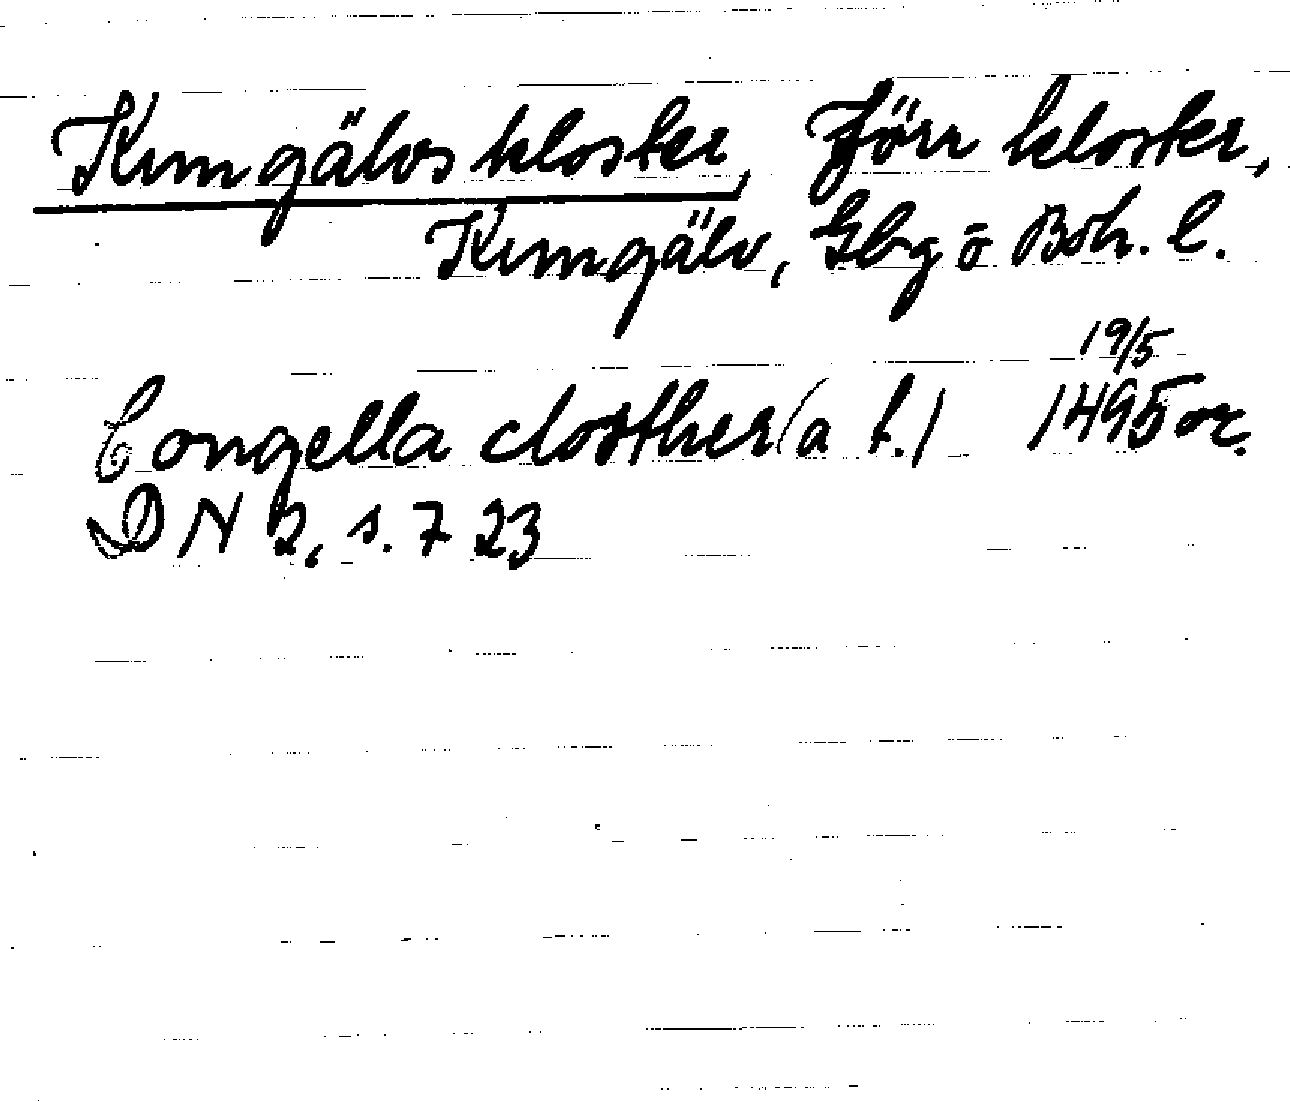 Kungälvs kloster, förr kloster,
Kungälv, Gbg o Boh. l.
19/5
Congella closther (a f.) 1495 or.
DN 2, s. 723